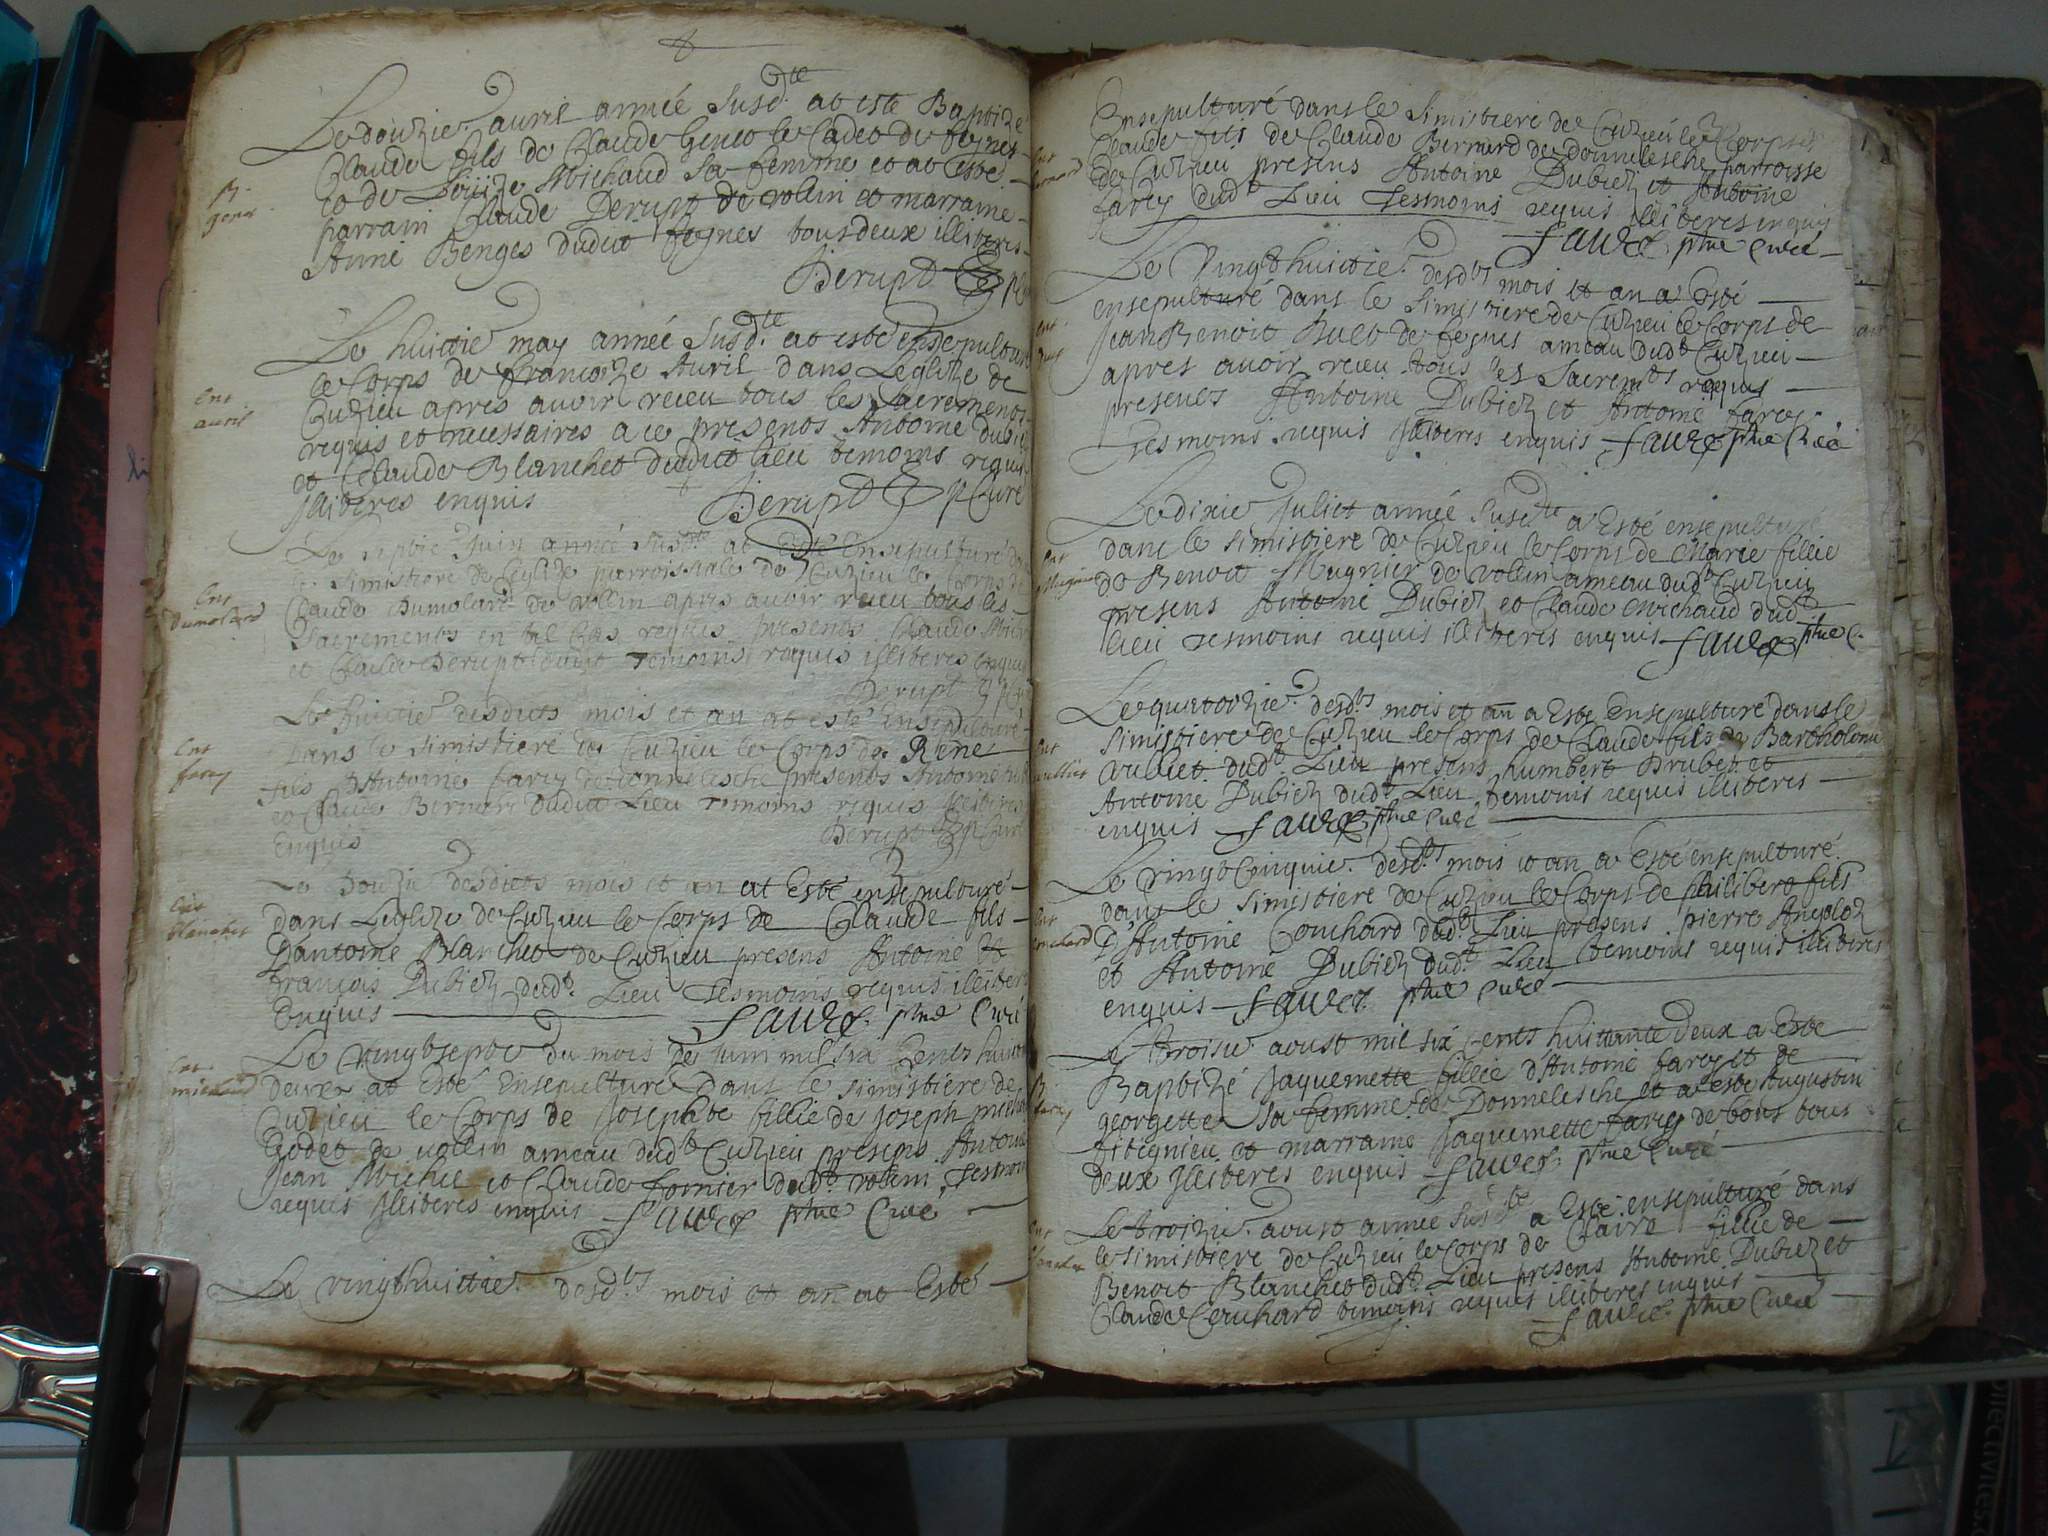 Le douzie. auril année Susd.te at este Baptizé
Claude fils de Claude Genet le Cadet de feignes
et de Loüize Michaud Sa femme et at esté
parrain Claude Derupt de vollin et marraine
Anne Benges dudict feignes tous deux illiteres
Derupt
B.
Le huictie may année Susd.te at esté ensepulturé
le Corps de francoize Auril dans Leglize de
Cuzieu apres auoir receu tous les Sacrements
requis et necessaires a ce presents Antoine Dubiez
et Claude Blanchet dudict lieu temoins requis
illiteres enquis Derupt p Curé
Ent.
auril
Le septie. Juin année Susd.te at esté Ensepulturé
Simistiere de leglize parroissiale de Cuzieu le Corps de
Claude Dumolard de vollin apres auoir receu tous les
Sacrements en tel Cas requis presents Claude
et Claude Derupt dudict temoins requis illiteres enquis
Derupt
Ent
Dumolard
Le huictie desdicts mois et an at esté Ensepulturé
Dans le Simistiere de Cuzieu le Corps de Rene
fils D'Antoine farcy de donnelesche presents Antoine
et Claude Bernard dudict Lieu temoins requis illiteres
Enquis Derupt p Curé
Ent
farcy
Le Douzie desdicts mois et an at Esté ensepulturé
dans Leglize de Cuzieu le Corps de Claude fils
Dantoine Blanchet de Cuzieu presens Antoine et
françois Dubiez dud.t Lieu Tesmoins requis illiteres
Enquis faure ptre Curé
Ent
blanchet
Le vingtsept du mois de Juin mil six Cents huictante
deux at Esté Ensepulturé Dans le Simistiere de
Cuzieu le Corps de Josephte fillie de Joseph michaud
Godet de vollin ameau dud.t Cuzieu presens Antoine
Jean Michel et Claude fornier dud.t volein Tesmoins
requis Illiteres enquis faure ptre Curé
Ent.
michaud
Le vingthuictie. desd.ts mois et an at Esté
Ensepulturé dans le Simistiere de Cuzieu le Corps de
Claude fils de Claude Bernard de donnelesche parroisse
de Cuzieu presens Antoine Dubiez et Antoine
farcy dud.t Lieu Tesmoins requis illiteres enquis
faure ptre Curé
Le Vingthuictie. desd.ts mois et an a Esté
ensepulturé dans le Simistiere de Cuzieu le Corps de
Jean Benoit de fegnes ameau dud.t Cuzieu
apres auoir receu tous les Sacrem.ts requis
presents Antoine Dubiez et Antoine farcy
Tesmoins requis Illiteres enquis faure ptre Curé
Le dixie Juliet année Susd.te a Esté ensepulturé
dans le simistiere de Cuzieu le Corps de Marie fillie
de Benoit Mugnier de vollin ameau dud.t Cuzieu
presens Antoine Dubiez et Claude Michaud dud.t
lieu Tesmoins requis illiteres enquis faure ptre C.
Ent
Le quatorzie. desd.ts mois et an a Esté Ensepulturé dans le
simistiere de Cuzieu le Corps de Claude fils de Bartholomé
vulliet dud.t Lieu presens humbert Drubet et
Antoine Dubiez dud.t Lieu temoins requis illiteres
enquis faure ptre Curé
Ent
vulliet
Le vingt Cinquie. desd.ts mois et an a Esté ensepulturé
dans le simistiere de Cuzieu le Corps de philibert fils
D'Antoine Couchard dud.t Lieu presens pierre Ancoloz
et Antoine Dubiez dud.t Lieu temoins requis illiteres
enquis faure ptre Curé
Ent
Couchard
Le troisie aoust mil six cents huittante deux a Esté
Baptizé Jaquemette fillie d'Antoine farcy et de
georgette Sa femme de Donnelesche et a esté Augustin
fitignieu et marraine Jaquemette farcy de bons tous
deux Illiteres enquis faure ptre Curé
B.
farcy
Le troizie. aoust année Sus.te a Esté ensepulturé dans
le simistiere de Cuzieu le Corps de Claire fillie de
Benoit Blanchet dud.t Lieu presens Antoine Dubiez et
Claude Couchard temoins requis illiteres enquis
faure ptre Curé